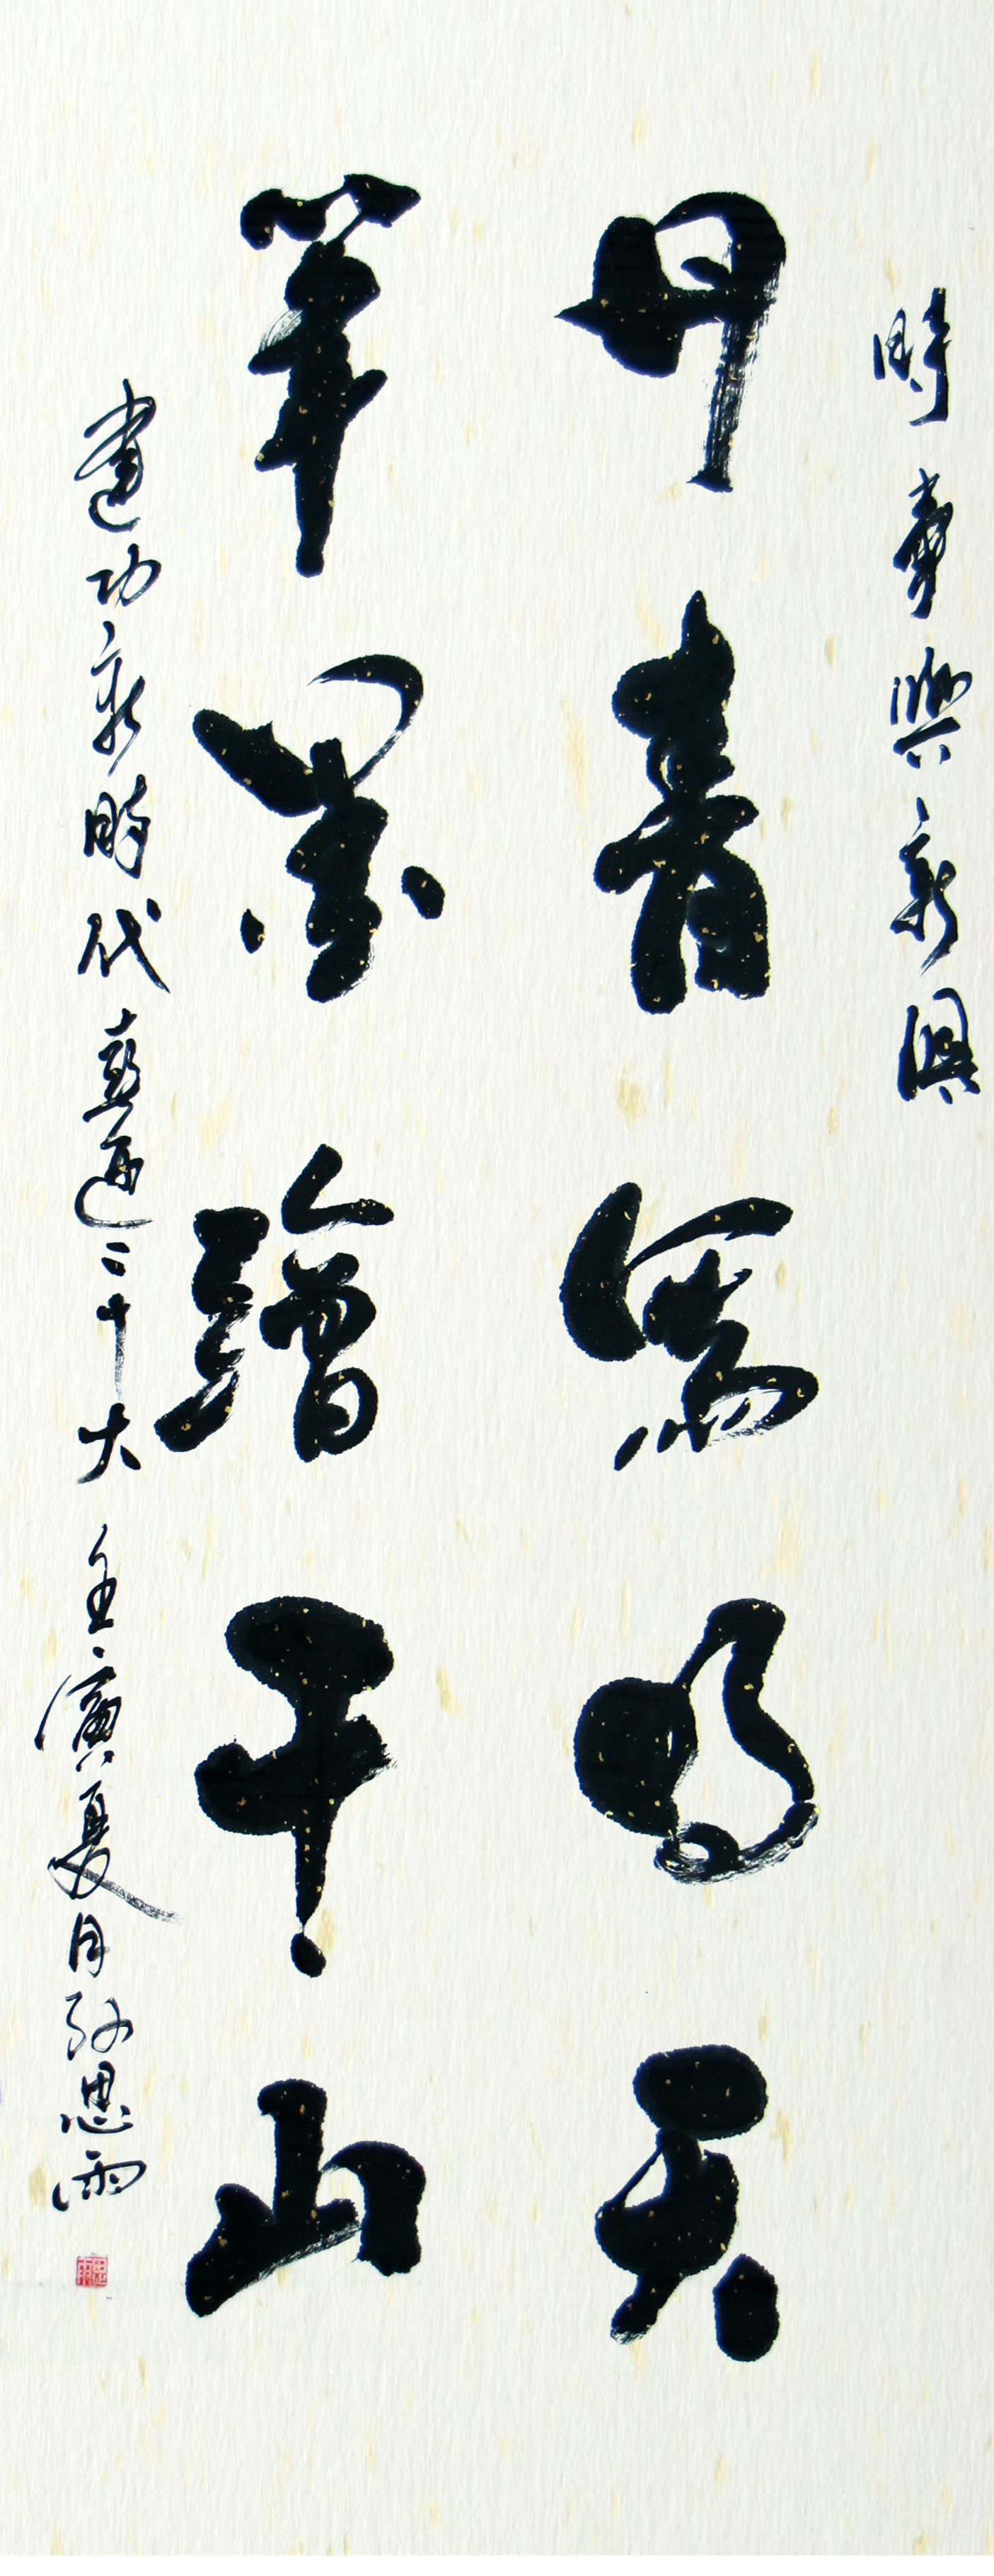 時事與新俱
丹青寫明天
筆墨繪千山
建功新時代喜迎二十大壬寅夏月孙思雨